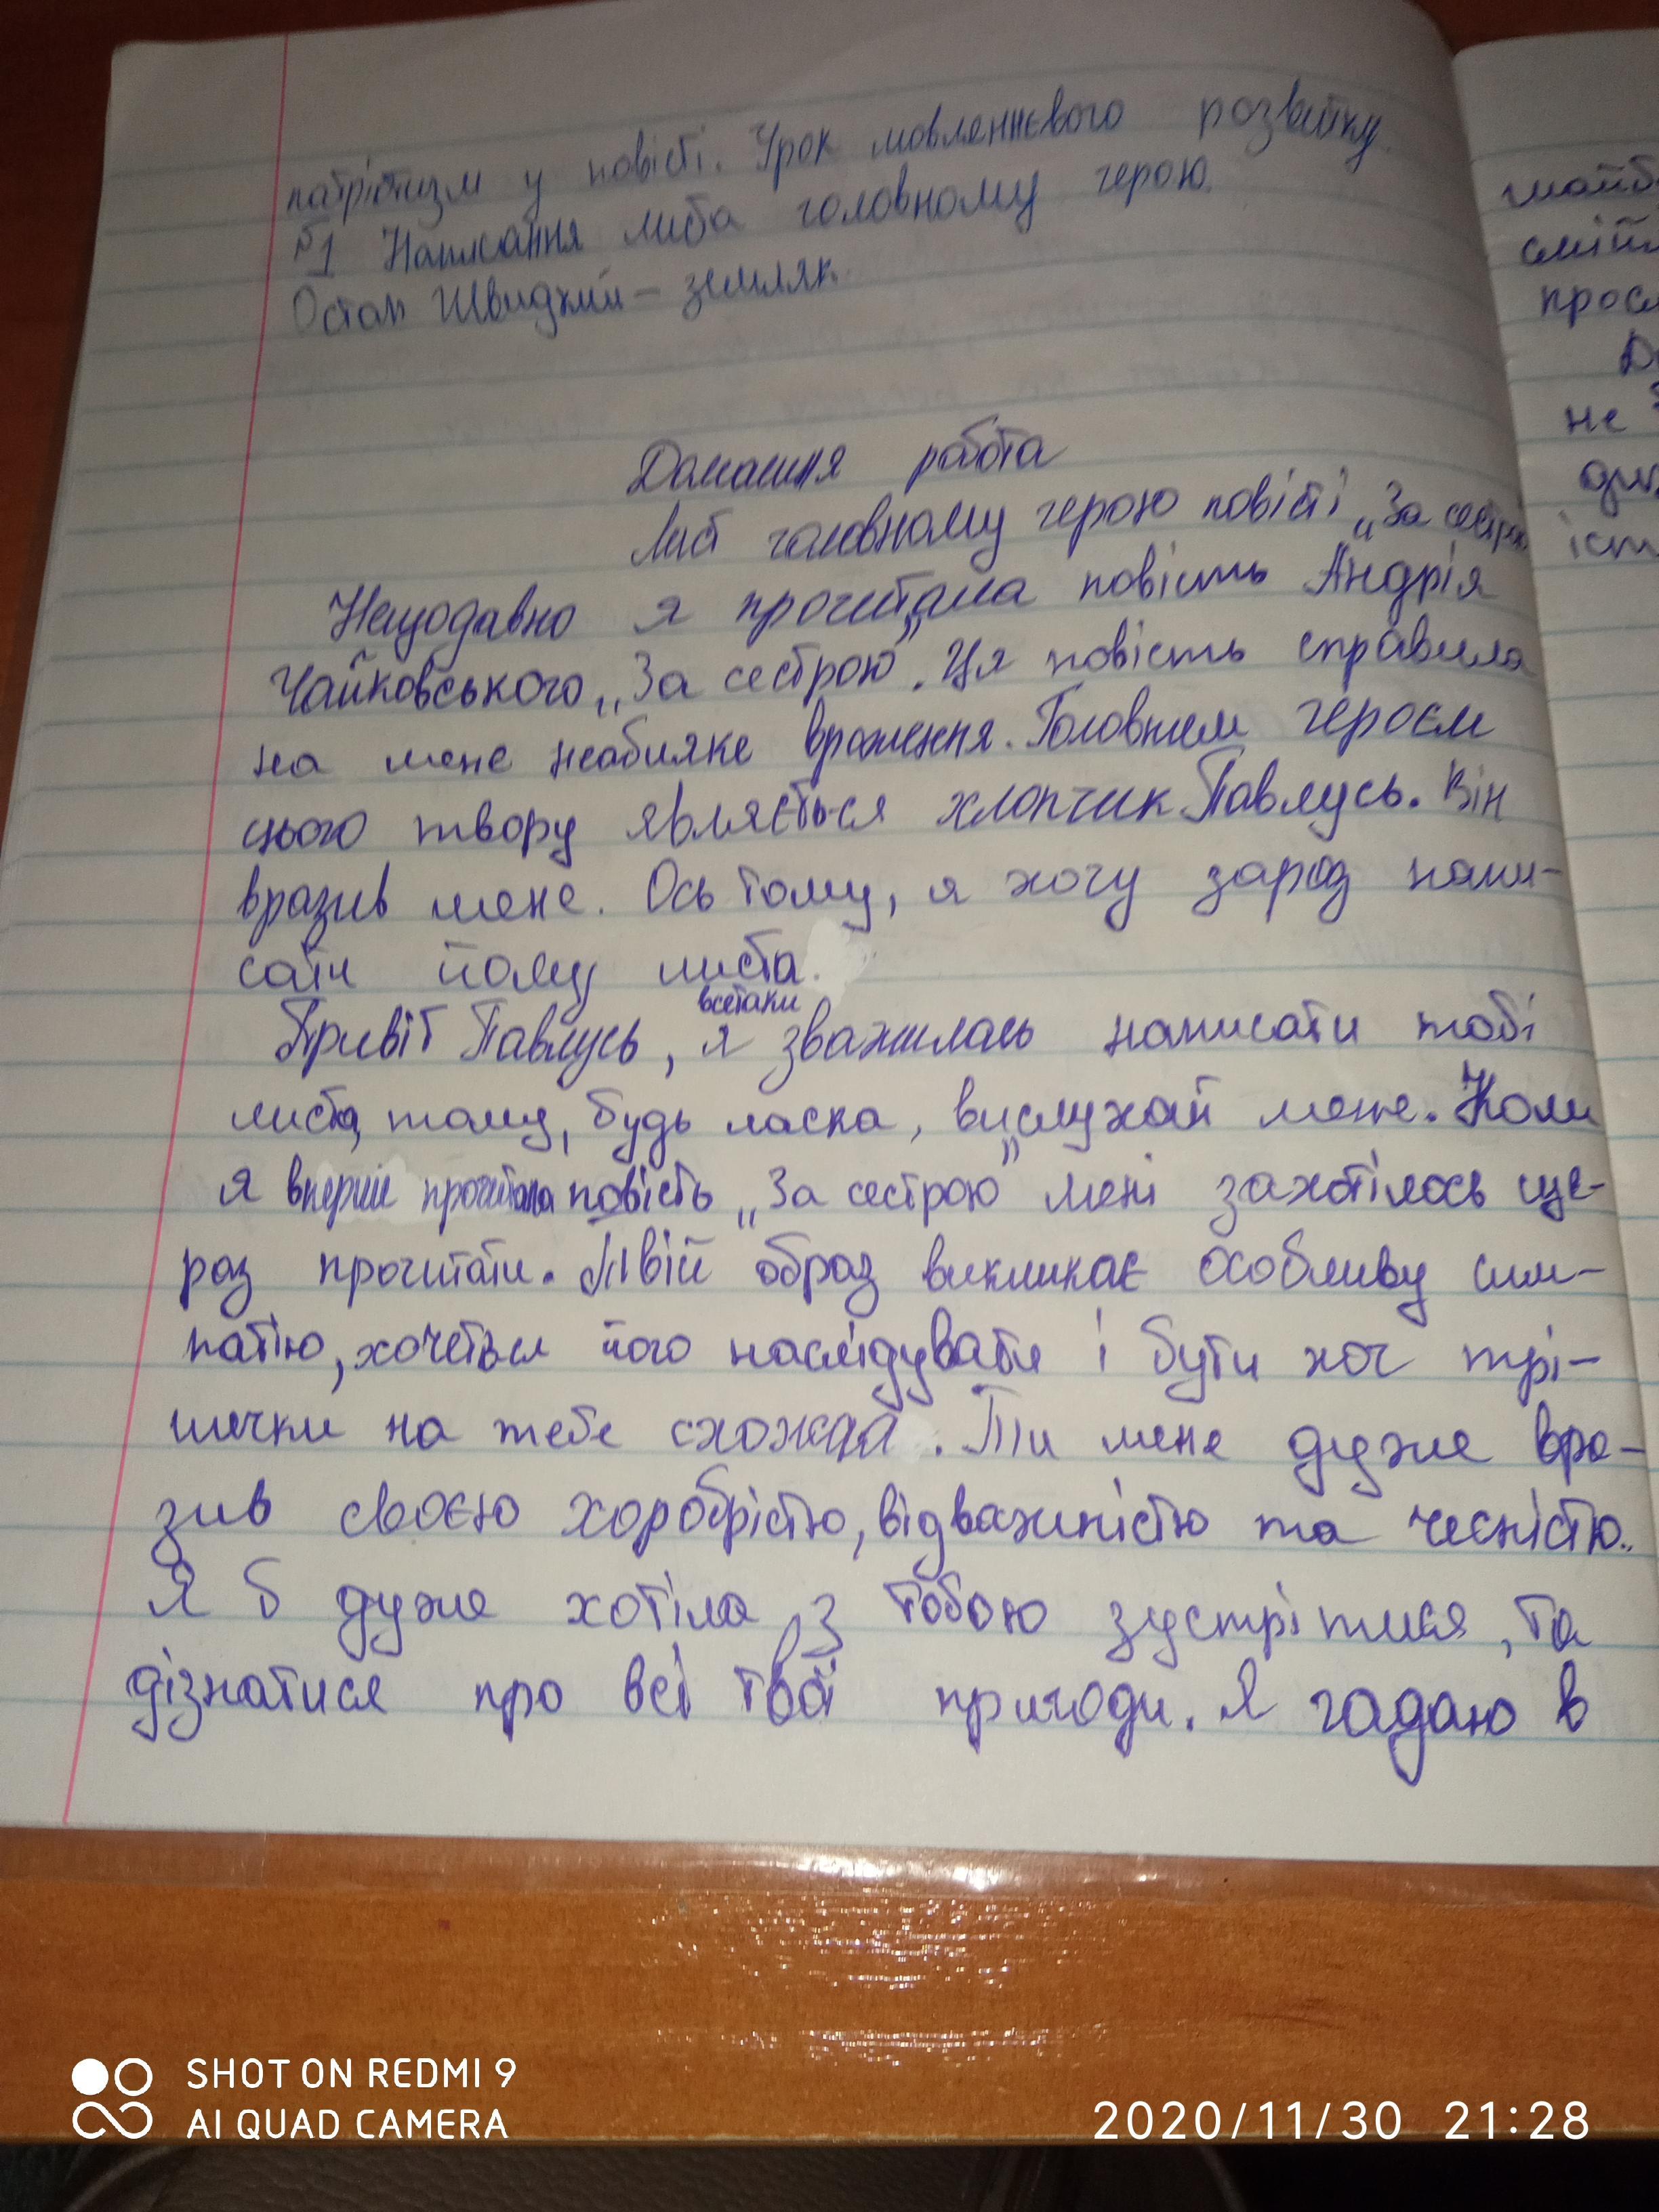 патріотизм у повісті. Урок мовленнєвого розвитку
№1 Написання листа головному герою.
Остап Швидкий – земляк.
Домашня робота
Лист головному герою повісті „За сестрою
Нещодавно я прочитала повість Андрія
Чайковського „За сестрою”. Ця повість справила
на мене неабияке враження. Головним героєм
цього твору являється хлопчик Павлусь. Він
вразив мене. Ось тому, я хочу зараз напи-
сати йому листа.
всетаки
Привіт Павлусь, я зважилась написати тобі
листа, тому, будь ласка, вислухай мене. Коли
я вперше прочитала повість „За сестрою” мені захотілось ще-
раз прочитати. Твій образ викликає особливу сим-
патію, хочеться його наслідувати і бути хоч трі-
шечки на тебе схожа. Ти мене дуже вра-
зив своєю хоробрістю, відважністю та чесністю.
Я б дуже хотіла з тобою зустрітися, та
дізнатися про всі твої пригоди. Я гадаю в
не
SHOT ON REDMI 9
AI QUAD CAMERA
2020/11/30 21:28